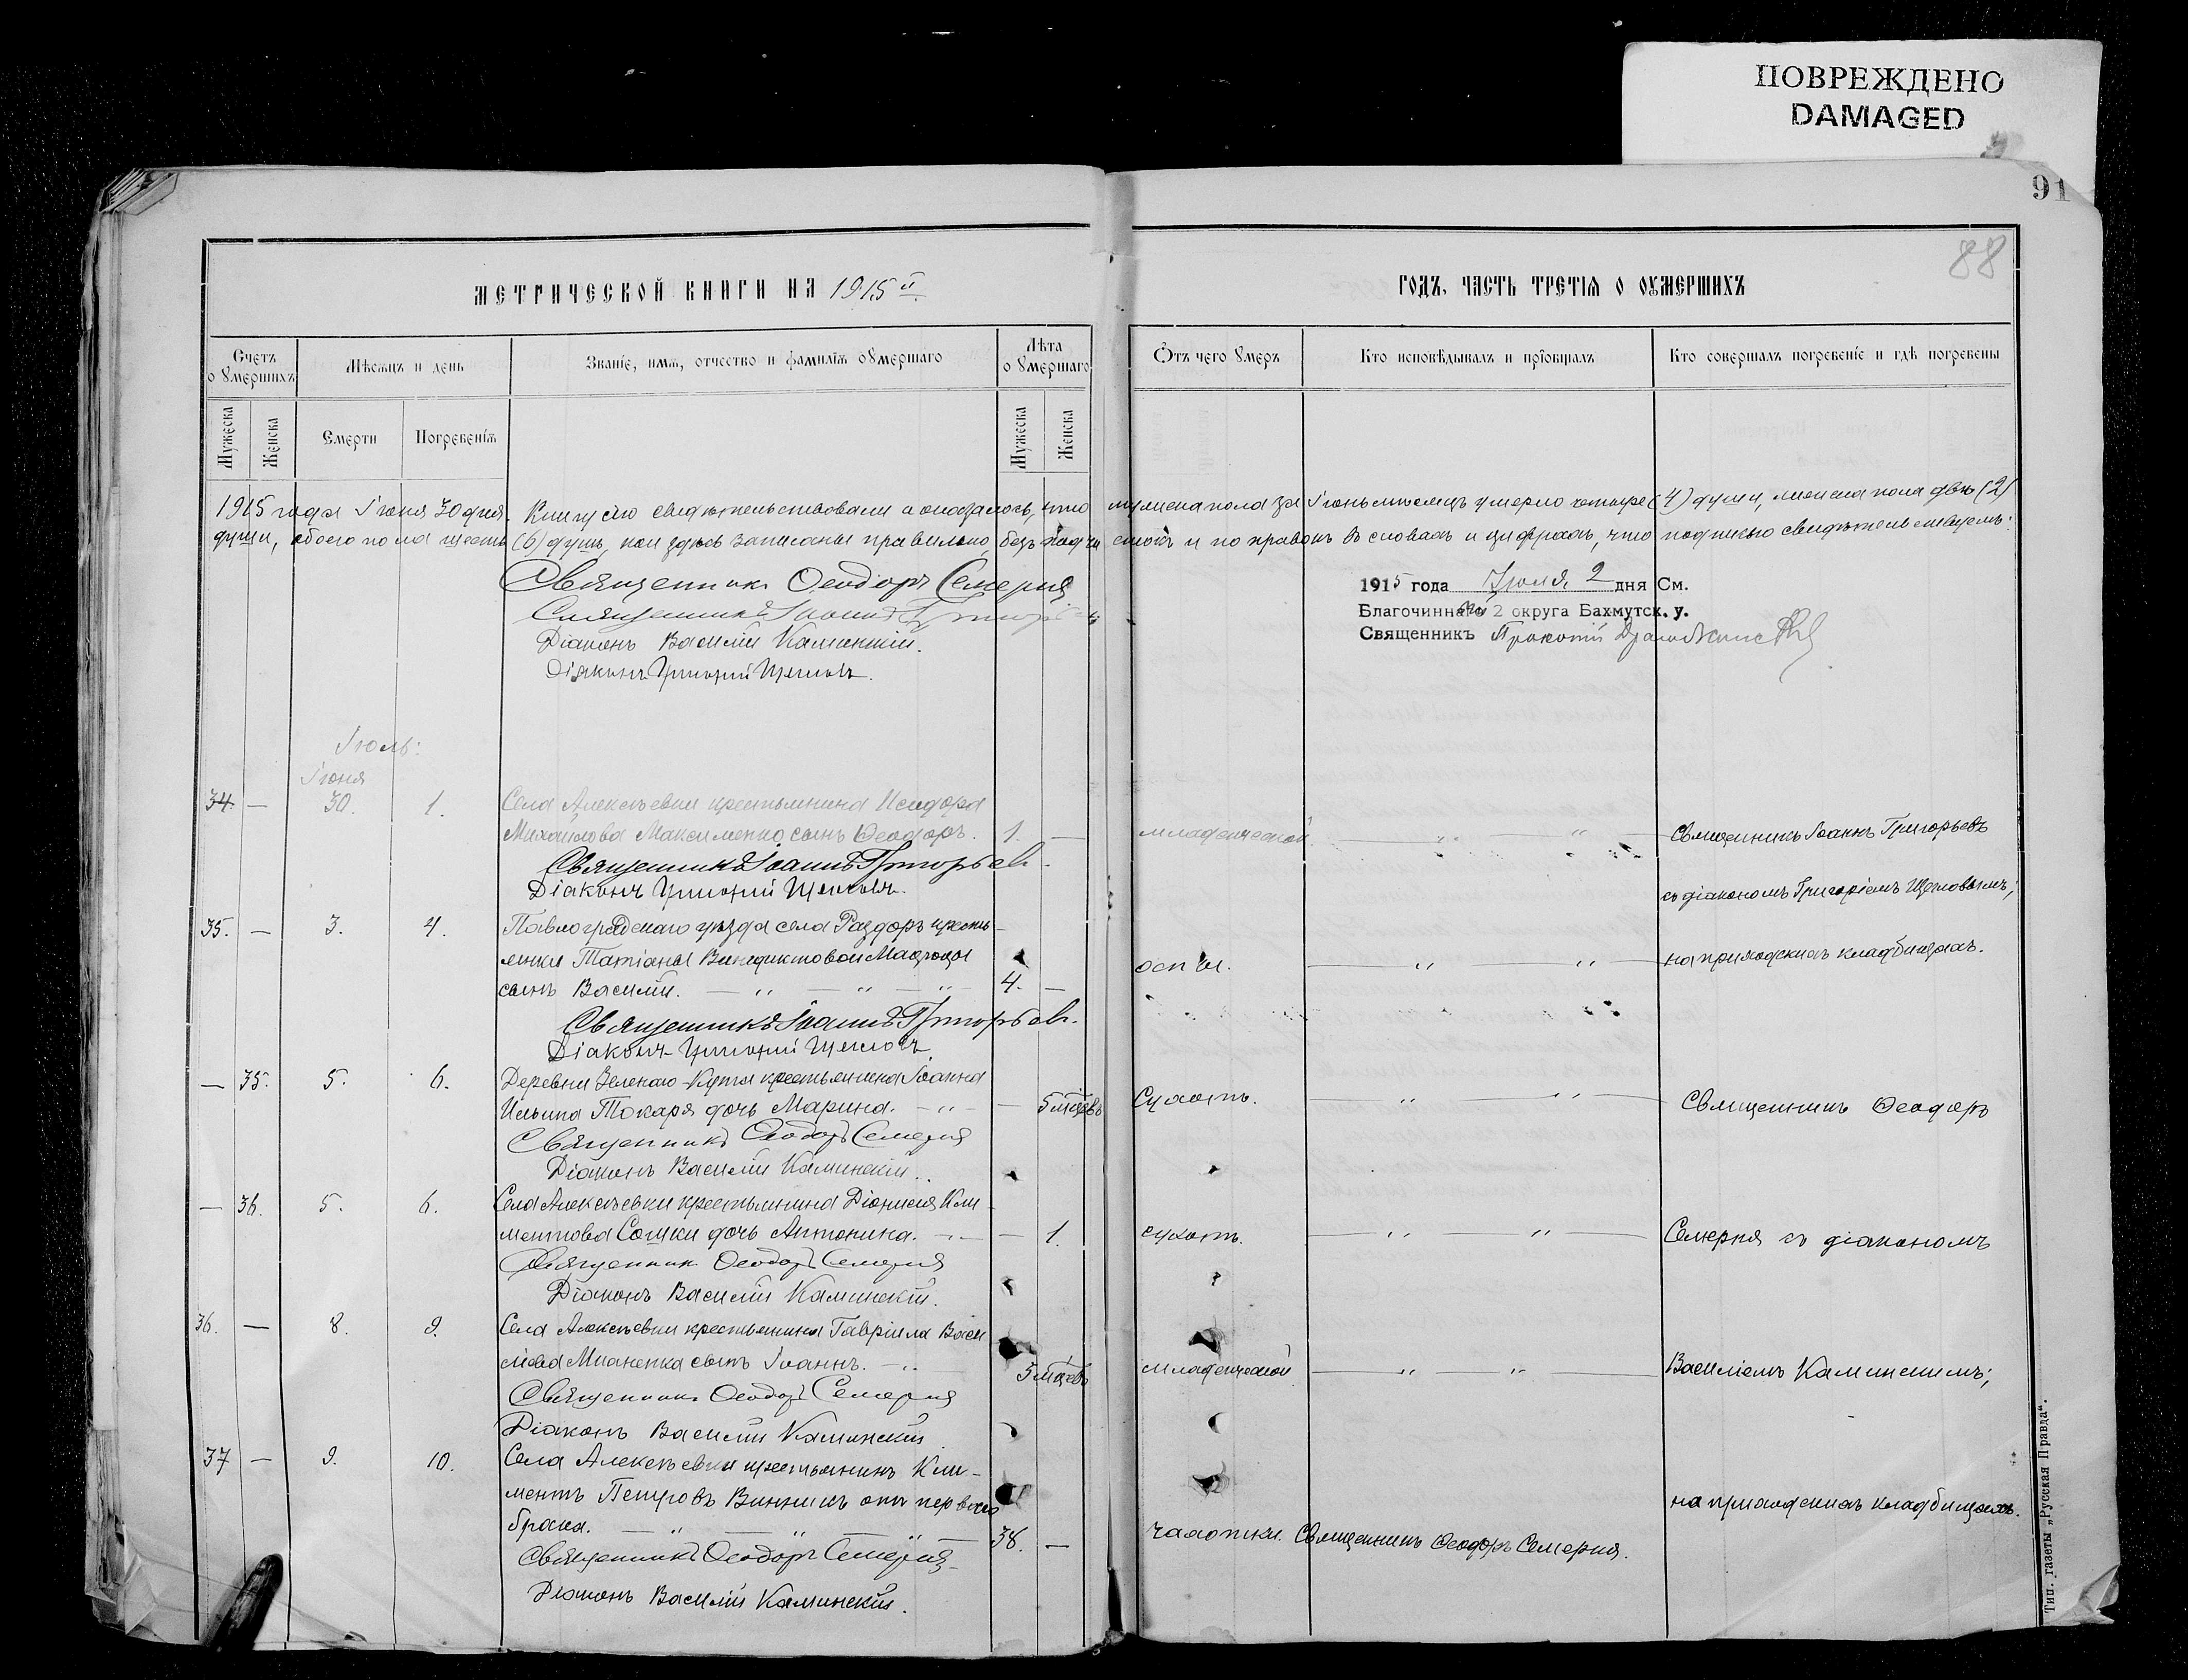 ПОВРЕЖДЕНО
DAMAGED
91
88
МЕТРИЧЕСКОЙ КНИГИ НА 1915й
ГОДЪ, ЧАСТЬ ТРЕТІѦ О ОУМЕРШИХЪ
Счетъ о умершихъ
Мѣсѧцъ и день
Званіе, имѧ, отчество и фамиліѧ оумершаго
Лѣта оумершаго
Отъ чего умеръ
Кто исповѣдывалъ и пріобщалъ
Кто совершалъ погребеніе и гдѣ погребены
Мужеска
Женска
Смерти
Погребеніѧ
Мужеска
Женска
1915 года Іюня 30 дня. Книгу сію свидѣтельствовали и оказалось, что мужеска пола за Іюнь мѣсяцъ умерло четыре (4) души, женска пола двѣ (2)
души, обоего пола шесть (6) душъ, кои здѣсь записаны правильно, безъ подчистокъ и поправокъ въ словахъ и цифрахъ, что подписью свидѣтельствуемъ:
Священникъ Ѳеодоръ Семерня
Священникъ Іоаннъ Григорьевъ
Діаконъ Василій Каминскій.
Діаконъ Григорій Щегловъ.
1915 года Іюля 2 дня См.
Благочинный 2 округа Бахмутск. у.
Священникъ Прокопій
Іюль:
Іюня
34. — 30. 1. Села Алексѣевки крестьянина Исидора
Михайлова Максименко сынъ Ѳеодоръ. 1. — младенческой — " — " — Священникъ Іоаннъ Григорьевъ
Священникъ Іоаннъ Григорьевъ.
Діаконъ Григорій Щегловъ.
съ діакономъ Григоріемъ Щегловымъ;
35. — 3. 4. Павлоградскаго уѣзда села Раздоръ кресть-
янки Татіаны Венедиктовой
сынъ Василій. — " — " — " — 4. — оспы. — " — " — на приходскихъ кладбищахъ.
Священникъ Іоаннъ Григорьевъ.
Діаконъ Григорій Щегловъ
— 35. 5. 6. Деревни Зеленаго-Кута крестьянина Іоанна
Ильина Токаря дочь Марина. — " — — 5 мѣсяцевъ Сухоть. — " — " — Священникъ Ѳеодоръ
Священникъ Ѳеодоръ Семерня
Діаконъ Василій Каминскій.
— 36. 5. 6. Села Алексѣевки крестьянина Діонисія Кли-
ментова Сошки дочь Антонина. — " — — 1. сухоть. — " — " — Семерня съ діакономъ
Священникъ Ѳеодоръ Семерня
Діаконъ Василій Каминскій.
36. — 8. 9. Села Алексѣевки крестьянина Гавріила Васи-
сынъ Іоаннъ. — " — 5 мѣсяцевъ младенческой — " — " — Василіемъ Каминскимъ;
Священникъ Ѳеодоръ Семерня
Діаконъ Василій Каминскій
37 — 9. 10. Села Алексѣевки крестьянинъ Кли-
ментъ Петровъ Винникъ отъ перваго
на приходскихъ кладбищахъ.
брака. — " — " — " — 38. — чахотки. Священникъ Ѳеодоръ Семерня.
Священникъ Ѳеодоръ Семерня
Діаконъ Василій Каминскій.
Тип. газеты „Русская Правда“.